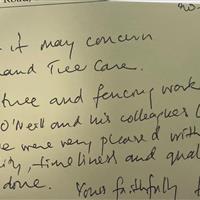 Road,
it may concern
and Tree Care.
tree and fencing work
O'Neill and his colleagues
were very pleased with
ity, timeliness and qual
done. Yours faithfully